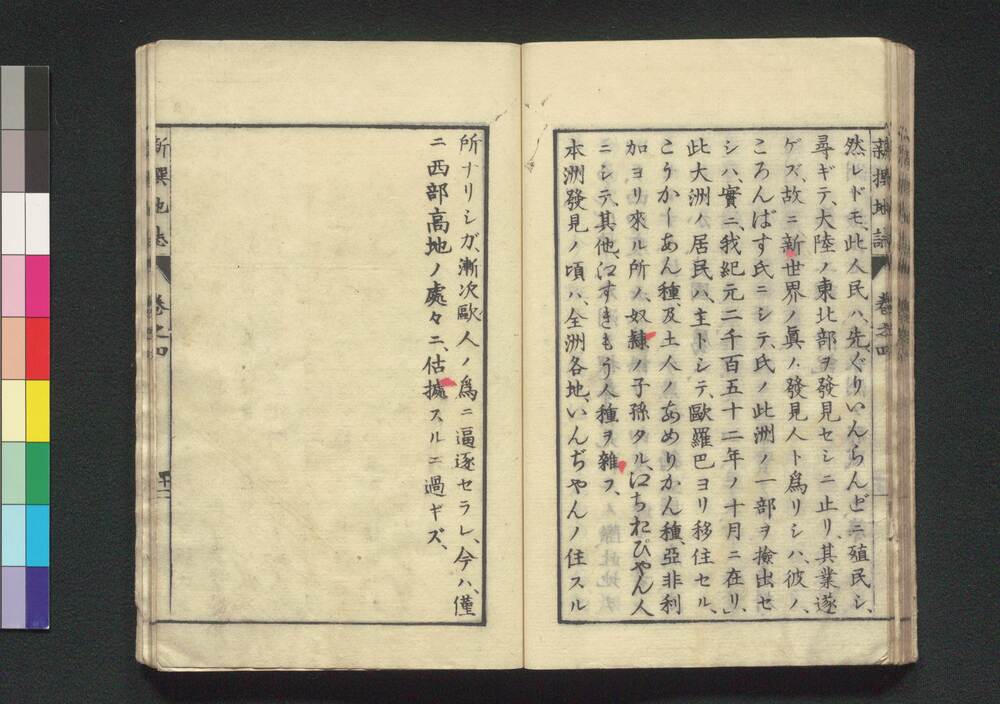 新撰地誌 卷之四
然レドモ、此人民ハ、先ぐりいんらんどニ殖民シ、
尋ギテ、大陸ノ東北部ヲ發見セシニ止リ、其業遂
ゲズ、故ニ新世界ノ眞ノ發見人ト爲リシハ、彼ノ、
ころんばす氏ニシテ、氏ノ此洲ノ一部ヲ撿出セ
シハ、實ニ、我紀元二千百五十二年ノ十月ニ在リ」
此大洲ノ居民ハ、主トシテ、歐羅巴ヨリ移住セル、
こうかーあん種、及土人ノあめりかん種、亞非利
加ヨリ來ル所ノ、奴隷ノ子孫タル、江ちおぴやん人
ニシテ、其他、江すきもう人種ヲ雜フ、
本洲發見ノ頃ハ、全洲各地、いんぢやんノ住スル
所ナリシガ、漸次歐人ノ爲ニ逼逐セラレ、今ハ、僅
ニ西部高地ノ處々ニ、估據スルニ過ギズ、
新撰地誌 卷之四 十一